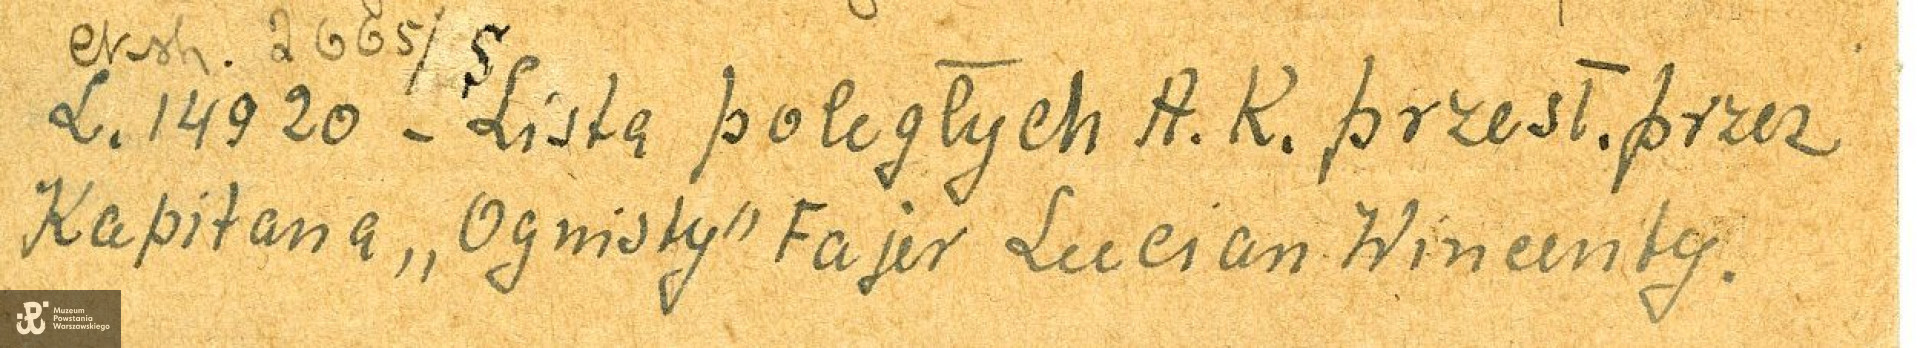 ewsh. 2665/5
L. 14920 - Lista poległych A.K. przesł. przez
Kapitana „Ognisty” Fajer Lucian Wincenty.
Muzeum
Powstania
Warszawskiego